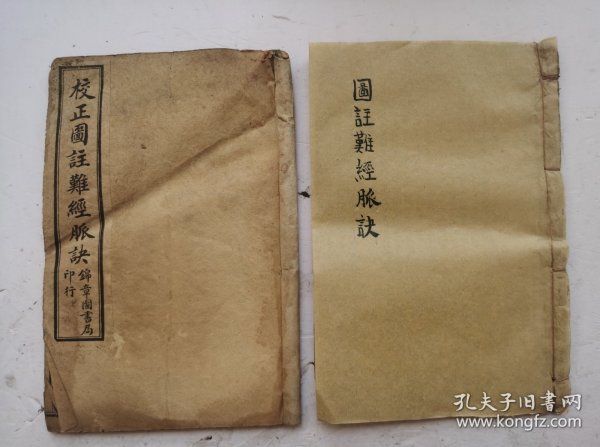 校正圖註難經脈訣
錦章圖書局
印行
圖註難經脈訣
孔夫子旧书网
www.kongfz.com